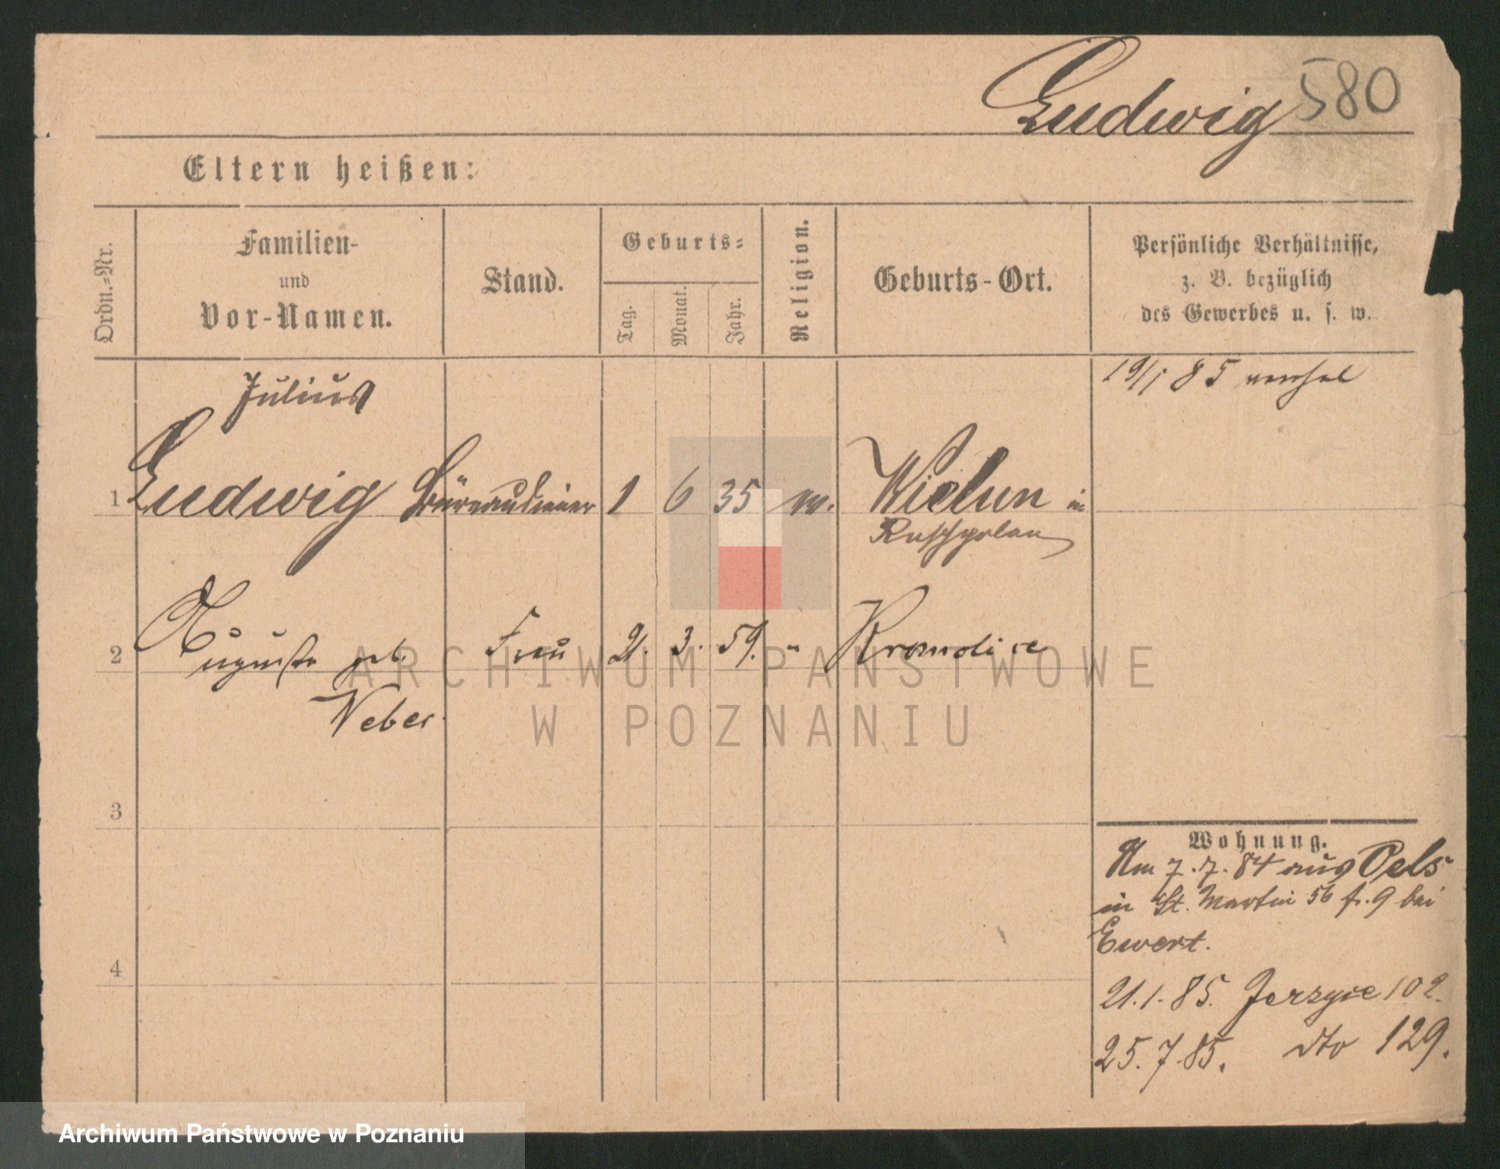 Ludwig 580
Eltern heißen:
Ordn.-Nr.
Familien-
und
Vor-Namen.
Stand.
Geburts-
Tag.
Monat.
Jahr.
Religion.
Geburts-Ort.
Persönliche Verhältnisse,
z. B. bezüglich
des Gewerbes u. s. w.
19/1 85
Julius
1 Ludwig Büreaudiener 1 6 35 Wielun in
Russ polen
2 Auguste geb. Frau 21. 3. 59. "
Weber
3
4
Wohnung.
Am 7.7.84 aus Oels
in St. Martin 56 fr. 9 bei
Ewert.
21.1.85. Jerzyce 102.
25.7.85. dto 129.
ARCHIWUM PAŃSTWOWE
W POZNANIU
Archiwum Państwowe w Poznaniu